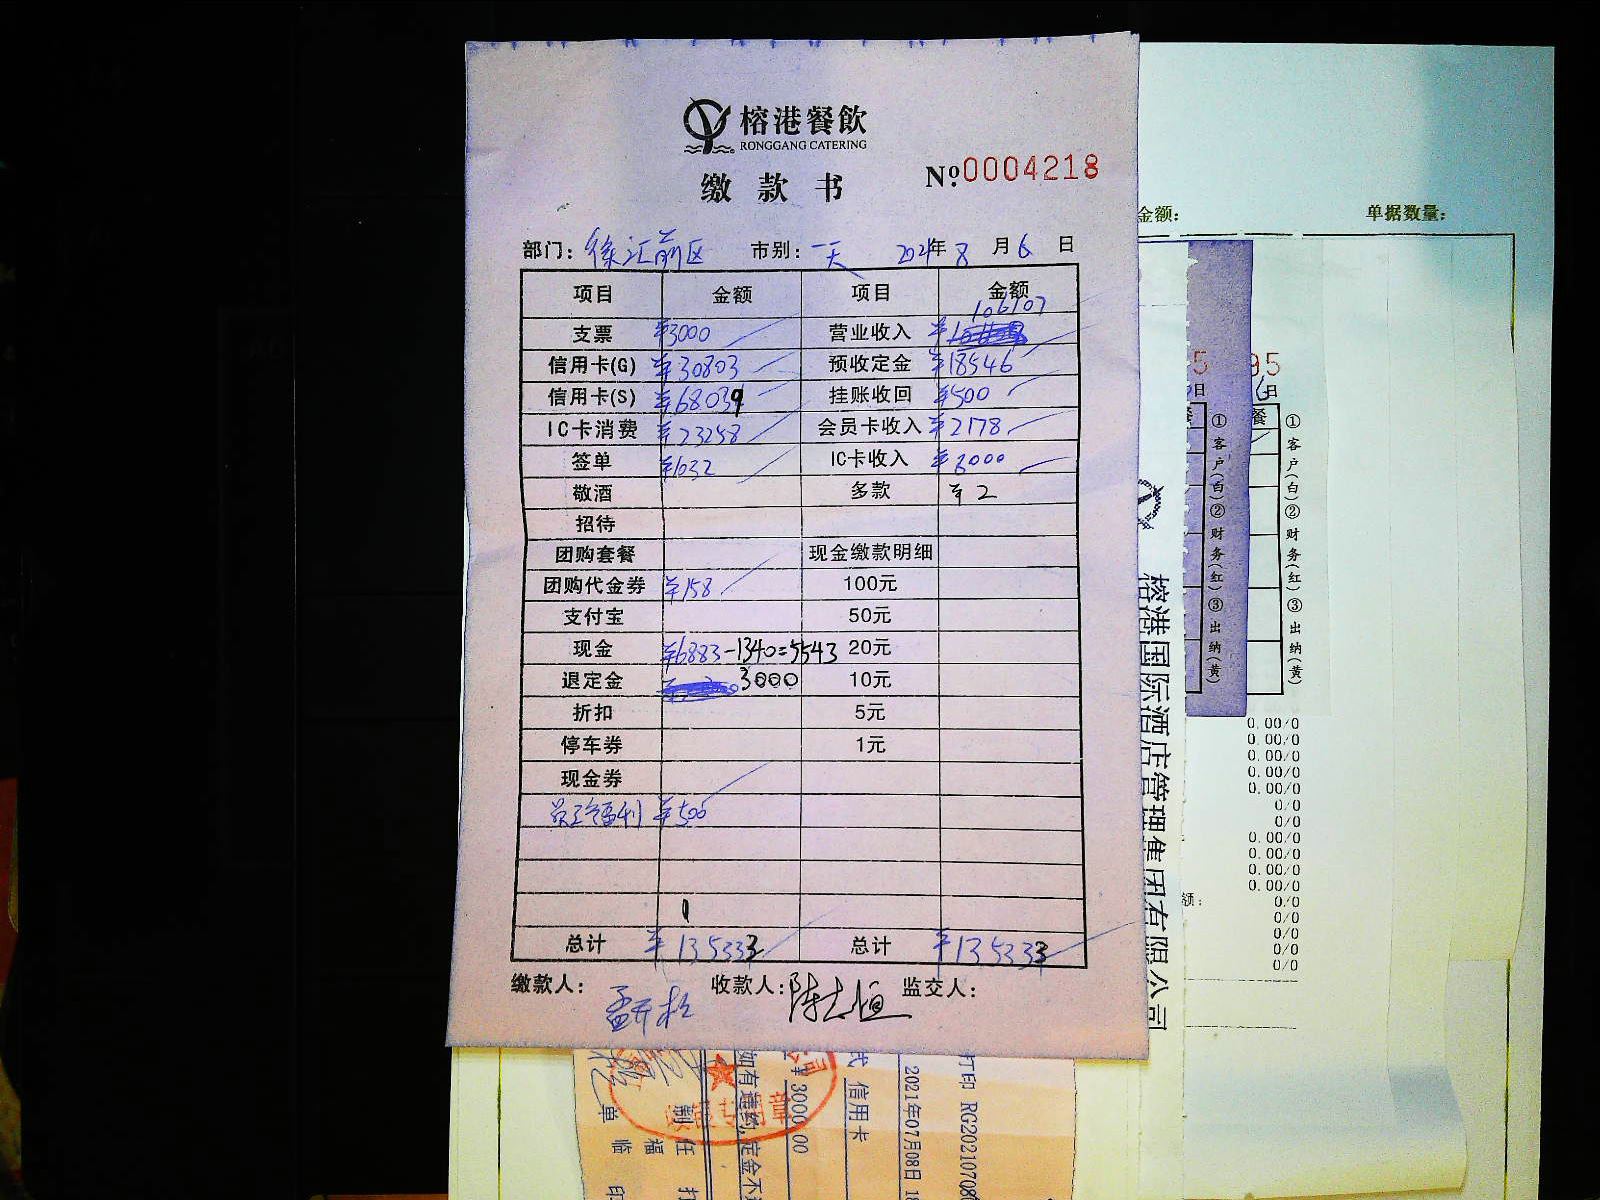 榕港餐飲
RONGGANG CATERING
缴款书
№0004218
部门：徐汇前区 市别：一天 2021年8月6日
项目 金额 项目 金额
支票 ¥3000 营业收入 ¥106107
信用卡(G) ¥30803 预收定金 ¥18546
信用卡(S) ¥68039 挂账收回 ¥500
IC卡消费 ¥23258 会员卡收入 ¥2178
签单 ¥1032 IC卡收入 ¥8000
敬酒 多款 ¥2
招待
团购套餐 现金缴款明细
团购代金券 ¥158 100元
支付宝 50元
现金 ¥6883-1340=5543 20元
退定金 3000 10元
折扣 5元
停车券 1元
现金券
员工福利 ¥500
总计 ¥135333 总计 ¥135333
缴款人： 收款人：陈志恒 监交人：
金额： 单据数量：
5 95
日 6日
餐
①客户(白)②财务(红)③出纳(黄)
①客户(白)②财务(红)③出纳(黄)
榕港国际酒店管理集团有限公司
0.00/0
0.00/0
0.00/0
0.00/0
0.00/0
0/0
0/0
0.00/0
0.00/0
0.00/0
0.00/0
额： 0/0
0/0
0/0
0/0
0/0
打印 RG20210708
2021年07月08日 18
式 信用卡
¥3000.00
如有违约，定金不
制 任 打
福
单 临 印